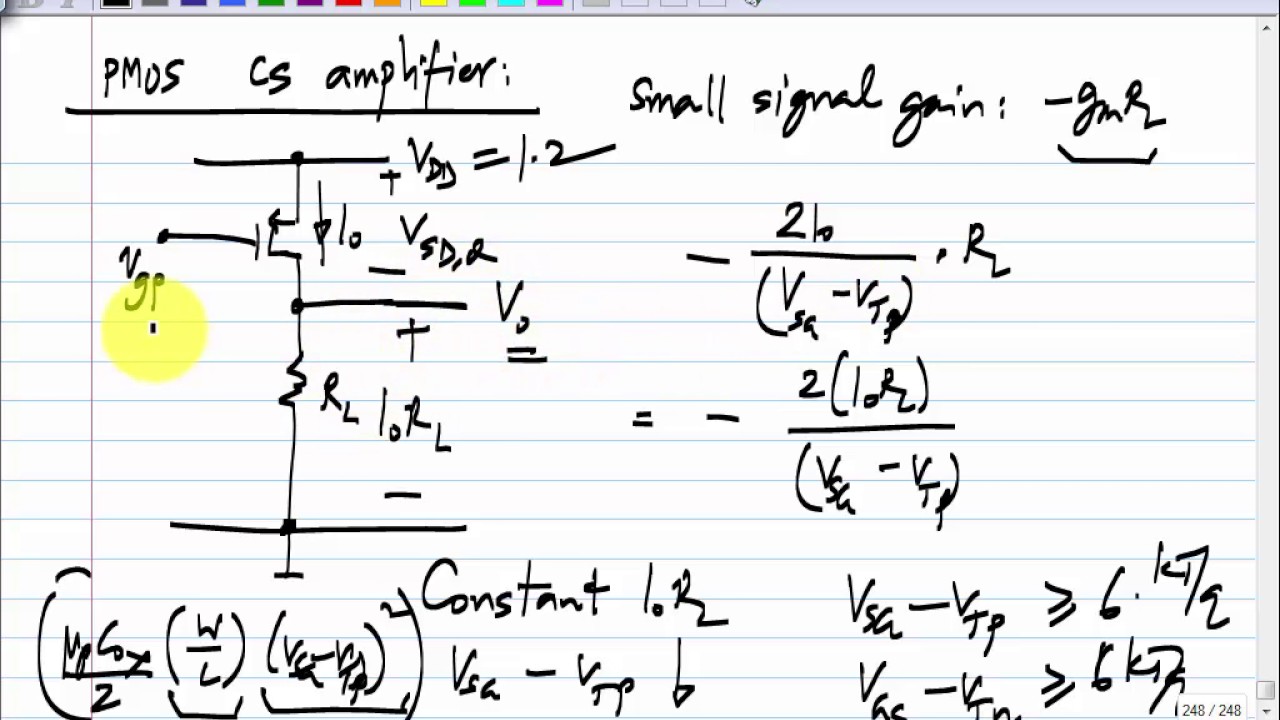 PMOS CS amplifier:
Small signal gain: -gmRL
+ VDD = 1.2
I0
VSD,Q
-
vgp
V0
+
RL
I0RL
-
- 2I0 / (VSG - VTp) · RL
= - 2(I0RL) / (VSG - VTp)
(μpCox / 2 (W / L) (VSG - VTp)²)
Constant I0RL
VSG - VTp ↓
VSG - VTp ≥ 6 · kT/q
VGS - VTn ≥ 6 kT/q
248 / 248